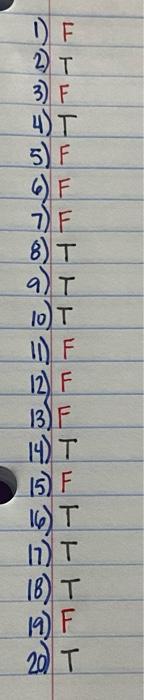 1) F
2) T
3) F
4) T
5) F
6) F
7) F
8) T
9) T
10) T
11) F
12) F
13) F
14) T
15) F
16) T
17) T
18) T
19) F
20) T